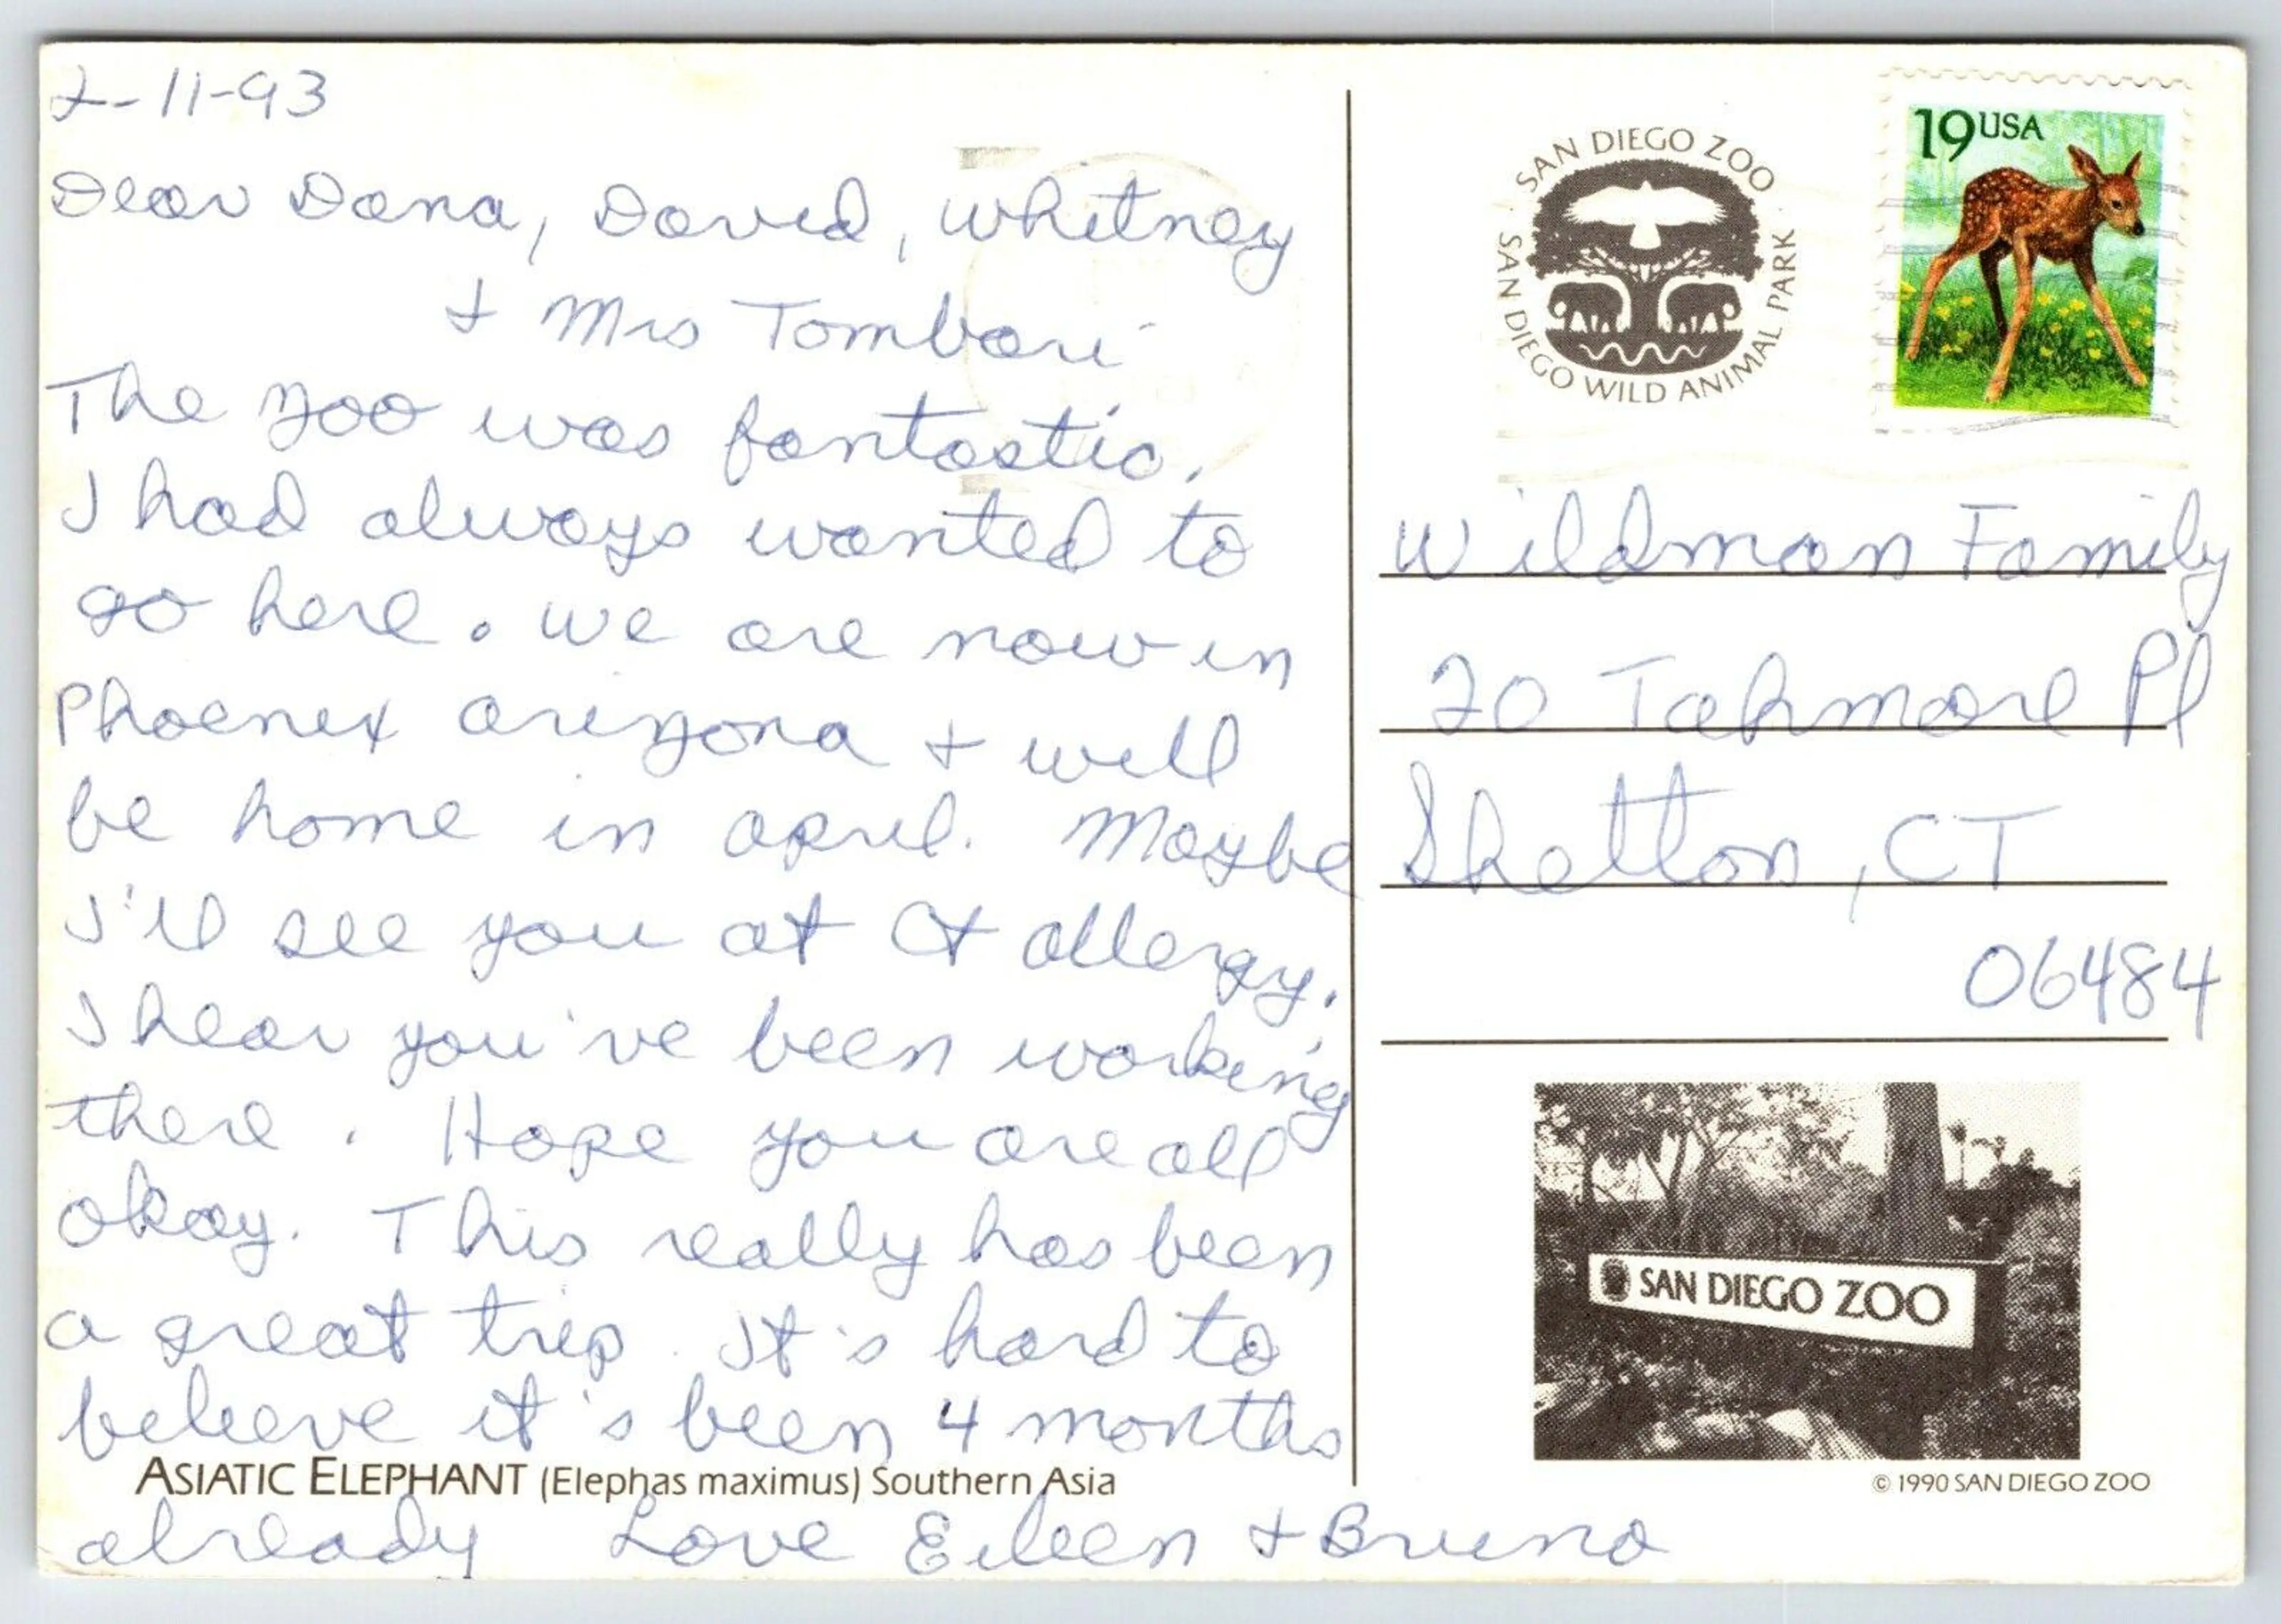 2-11-93
Dear Dana, David, Whitney
+ Mrs Tombari
The zoo was fantastic.
I had always wanted to
go here. We are now in
Phoenix arizona + will
be home in april. Maybe
I'll see you at Ct allergy.
I hear you've been working
there. Hope you are all
okay. This really has been
a great trip. It's hard to
believe it's been 4 months
ASIATIC ELEPHANT (Elephas maximus) Southern Asia
already Love Eileen + Bruno
SAN DIEGO ZOO
SAN DIEGO WILD ANIMAL PARK
19 USA
Wildman Family
20 Tahmore Pl
Shelton, CT
06484
SAN DIEGO ZOO
© 1990 SAN DIEGO ZOO